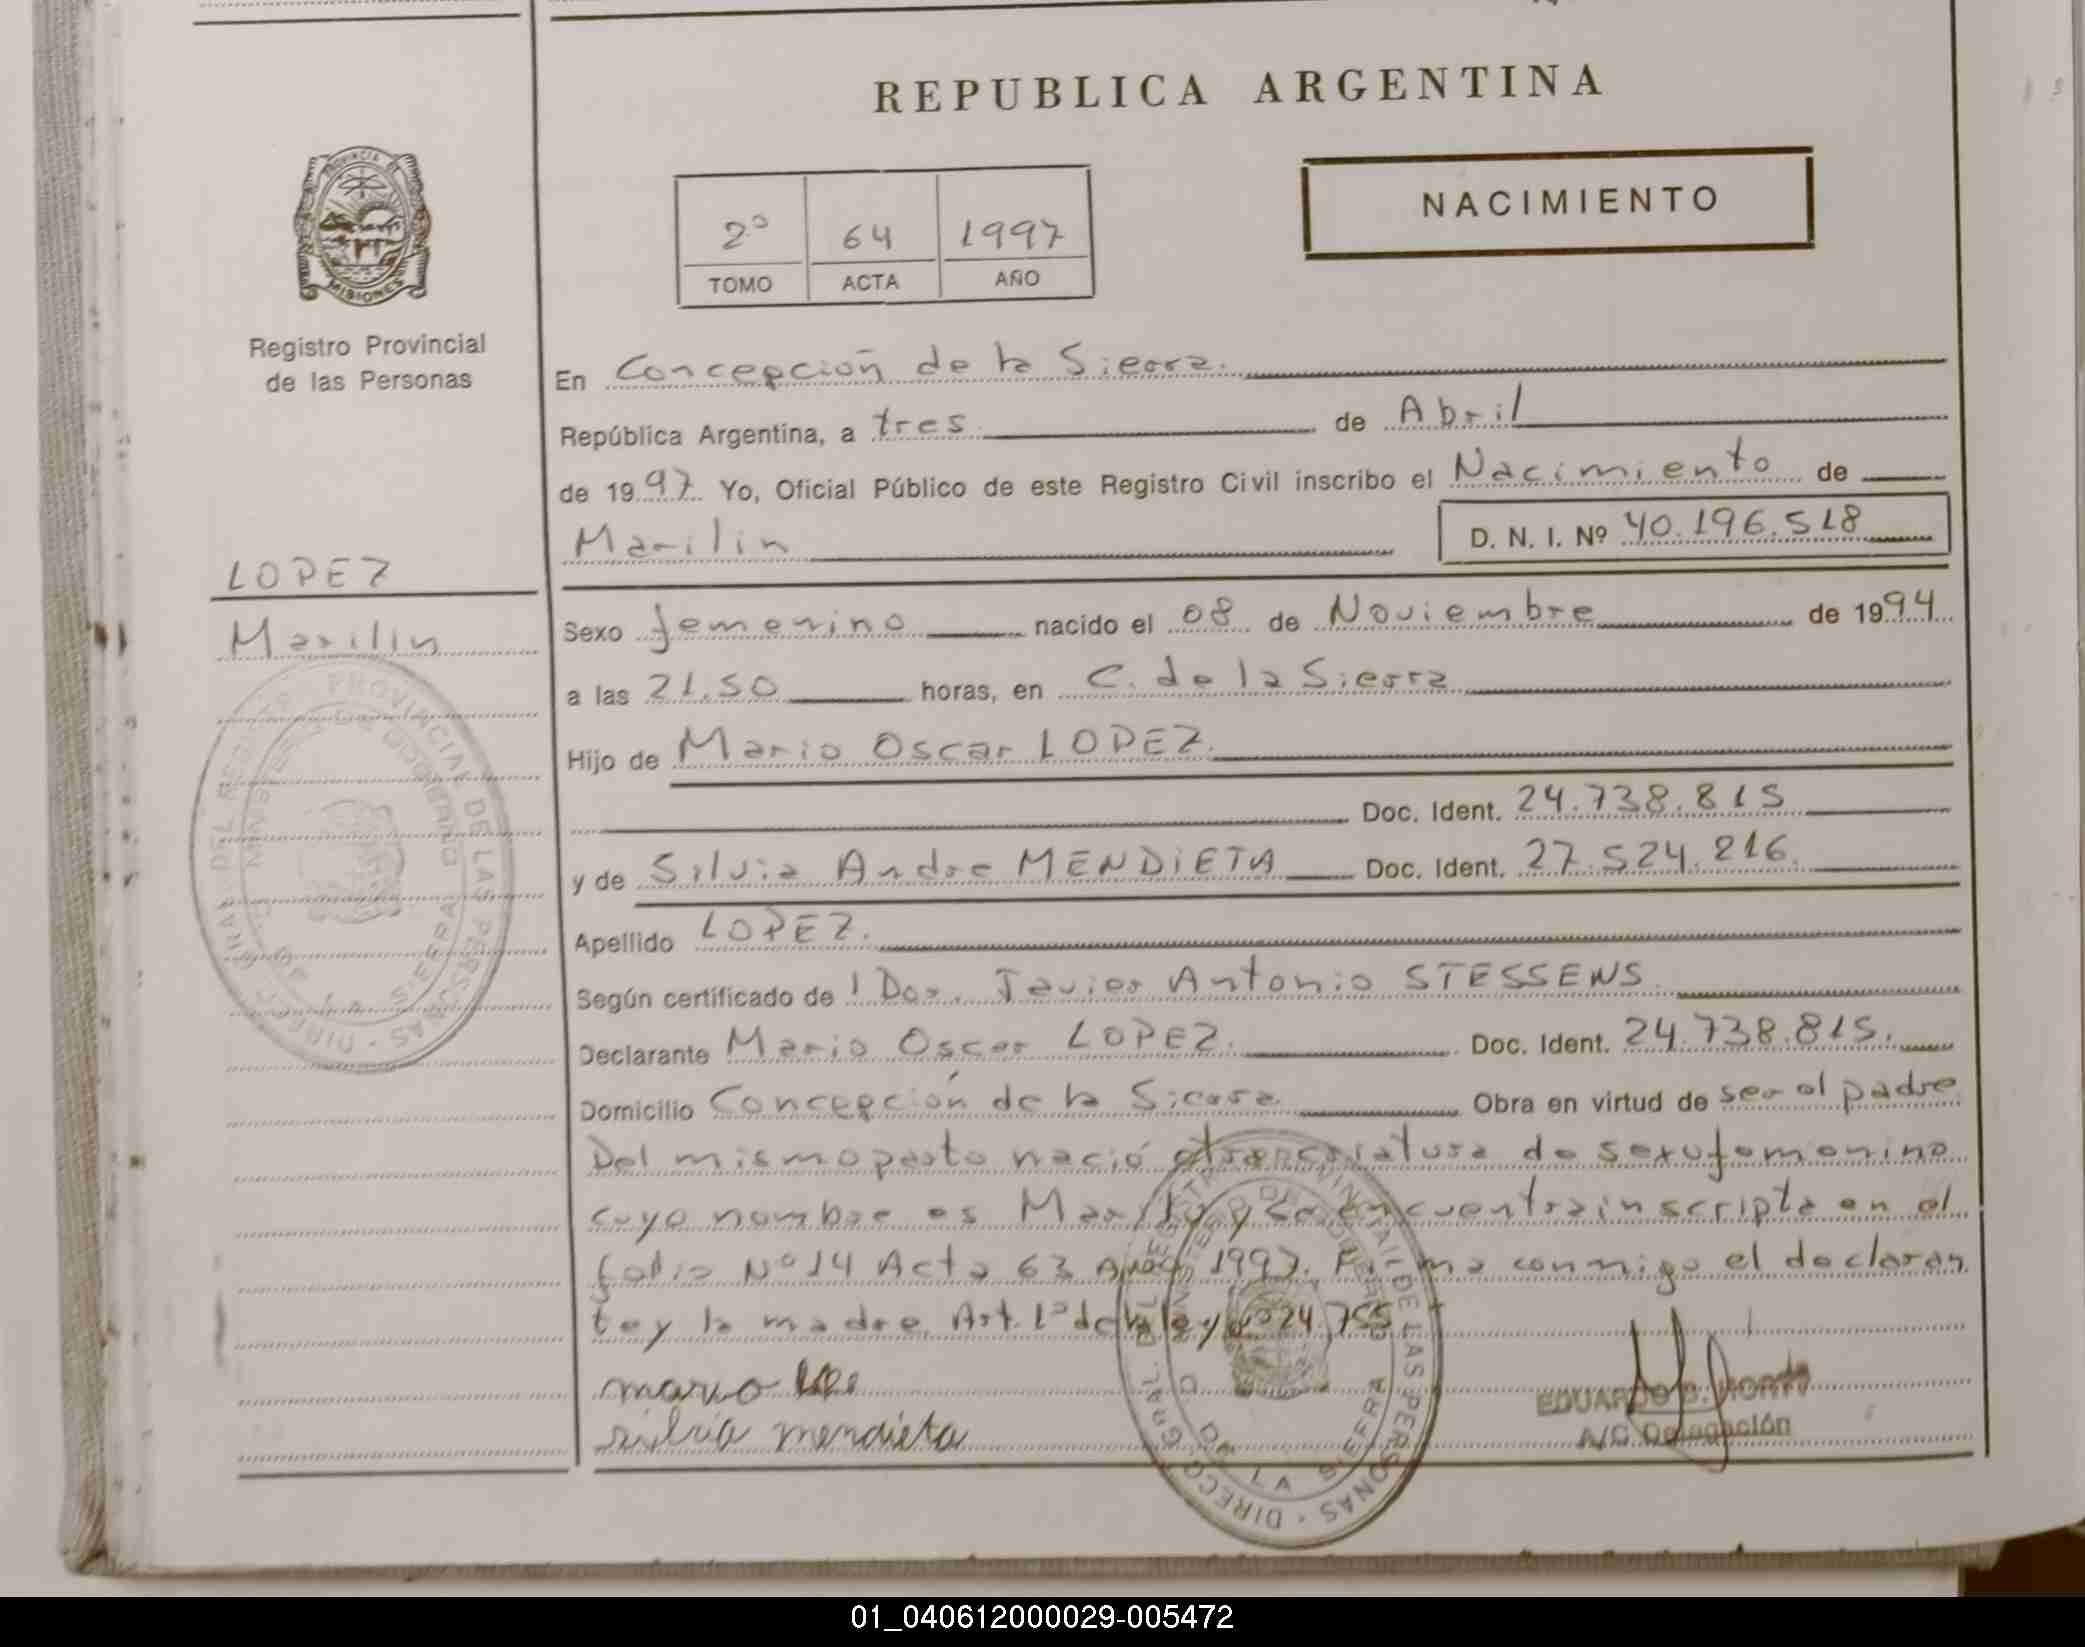 REPUBLICA ARGENTINA
NACIMIENTO
2º 64 1997
TOMO ACTA AÑO
PROVINCIA DE
MISIONES
Registro Provincial
de las Personas
LOPEZ
Marilin
En Concepción de la Sierra.
República Argentina, a tres de Abril
de 1997 Yo, Oficial Público de este Registro Civil inscribo el Nacimiento de
Marilin D. N. I. Nº 40.196.518
Sexo femenino nacido el 08 de Noviembre de 1994
a las 21.50 horas, en C. de la Sierra
Hijo de Mario Oscar LOPEZ.
Doc. Ident. 24.738.815
y de Silvia Andre MENDIETA Doc. Ident. 27.524.216.
Apellido LOPEZ.
Según certificado de Dor. Javier Antonio STESSENS.
Declarante Mario Oscar LOPEZ. Doc. Ident. 24.738.815.
Domicilio Concepción de la Sierra Obra en virtud de ser el padre
Del mismo parto nació otra criatura de sexo femenino
cuyo nombre es y se encuentra inscripta en el
folio Nº 14 Acta 63 Año 1997. Firma conmigo el declaran
te y la madre. Art. 1º de la ley nº 24.755
mario
silvia mendieta
EDUARDO
A/C Delegación
DIRECC. GRAL. DEL REGISTRO PROVINCIAL DE LAS PERSONAS
MINISTERIO DE GOBIERNO
C. DE LA SIERRA
DIRECC. GRAL. DEL REGISTRO PROVINCIAL DE LAS PERSONAS
MINISTERIO DE GOBIERNO
C. DE LA SIERRA
01_040612000029-005472